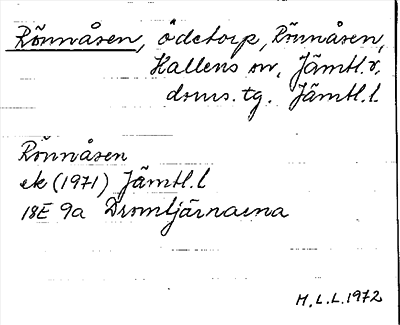 Rönnåsen, ödetorp, Rönnåsen,
Kallens sn, Jämtl.v.
doms.tg. Jämtl.l.
Rönnåsen
ek (1971) Jämtl.l
18E 9a Dromtjärnarna
M.L.L. 1972